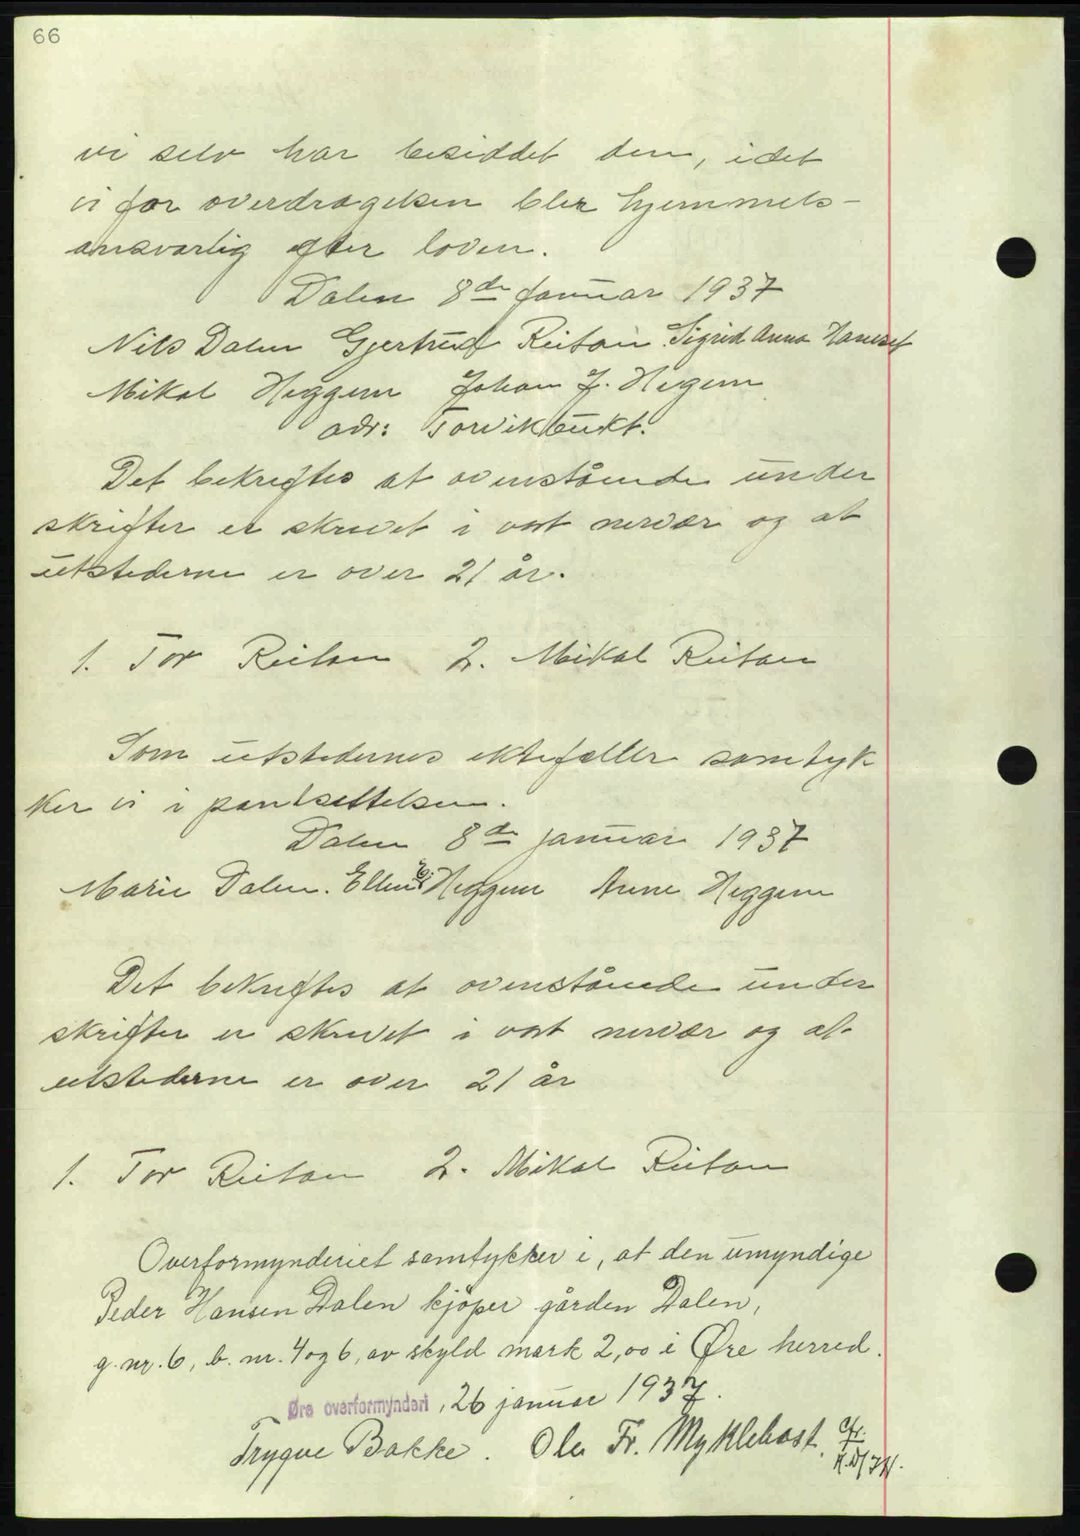 66
vi selv har besiddet den, idet
vi for overdragelsen blir hjemmels-
ansvarlig efter loven.
Dalen 8de januar 1937
Nils Dalen Gjertrud Reitan Sigrid Anna
Mikal Heggem Johan J. Hegem
adr: Torvikbukt.
Det bekreftes at ovenstående under
skrifter er skrevet i vort nervær og at
utstederne er over 21 år.
1. Tor Reitan 2. Mikal Reitan
Som utstedernes ektefæller samtyk
ker vi i pantsettelsen.
Dalen 8de januar 1937
Marie Dalen. Ellen Heggem Anne Heggem
Det bekreftes at ovenstående under
skrifter er skrevet i vort nervær og at
utstederne er over 21 år
1. Tor Reitan 2. Mikal Reitan
Overformynderiet samtykker i, at den umyndige
Peder Hansen Dalen kjöper gården Dalen,
g. nr. 6, b. nr. 4 og 6, av skyld mark 2,00 i Øre herred.
Øre overformynderi, 26 januar 1937.
Trygve Bakke. Ole Fr. Myklebost.